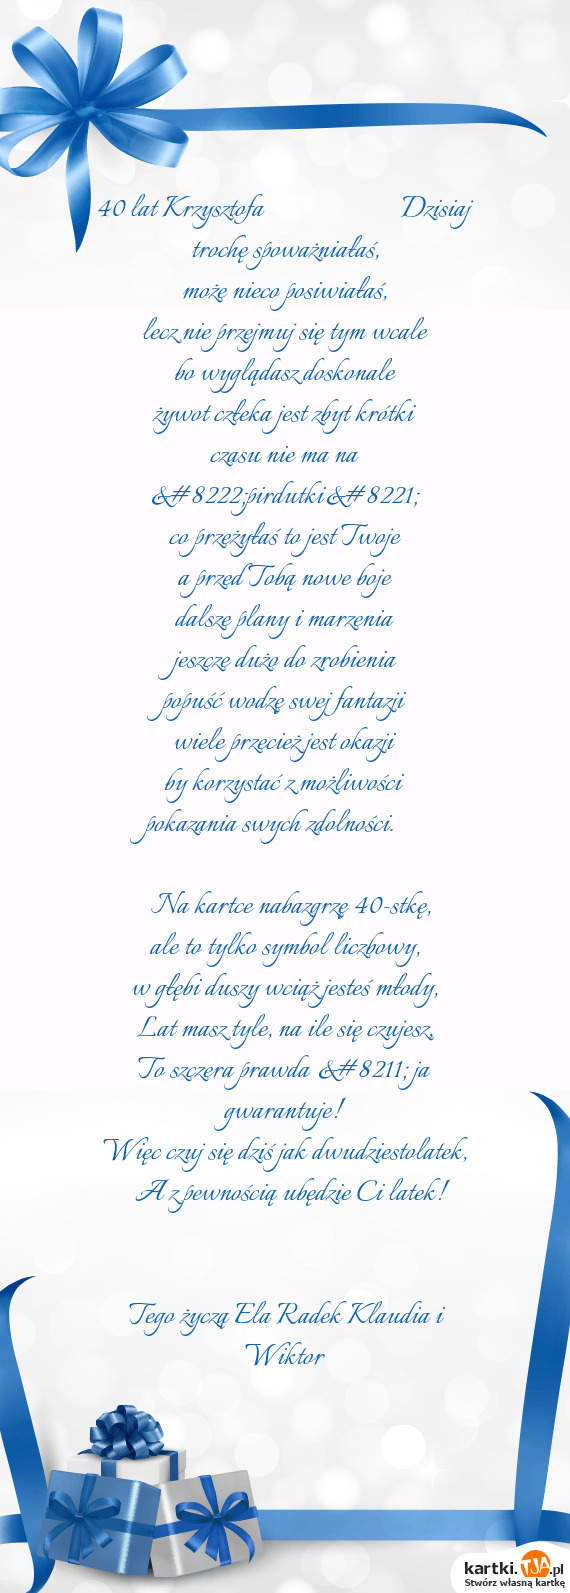 40 lat Krzysztofa Dzisiaj
trochę spoważniałaś,
może nieco posiwiałaś,
lecz nie przejmuj się tym wcale
bo wyglądasz doskonale
żywot człeka jest zbyt krótki
czasu nie ma na
&#8222;pirdutki&#8221;
co przeżyłaś to jest Twoje
a przed Tobą nowe boje
dalsze plany i marzenia
jeszcze dużo do zrobienia
popuść wodze swej fantazji
wiele przecież jest okazji
by korzystać z możliwości
pokazania swych zdolności.
Na kartce nabazgrzę 40-stkę,
ale to tylko symbol liczbowy,
w głębi duszy wciąż jesteś młody,
Lat masz tyle, na ile się czujesz,
To szczera prawda &#8211; ja
gwarantuje!
Więc czuj się dziś jak dwudziestolatek,
A z pewnością ubędzie Ci latek!
Tego życzą Ela Radek Klaudia i
Wiktor
kartki.TJA.pl
Stwórz własną kartkę